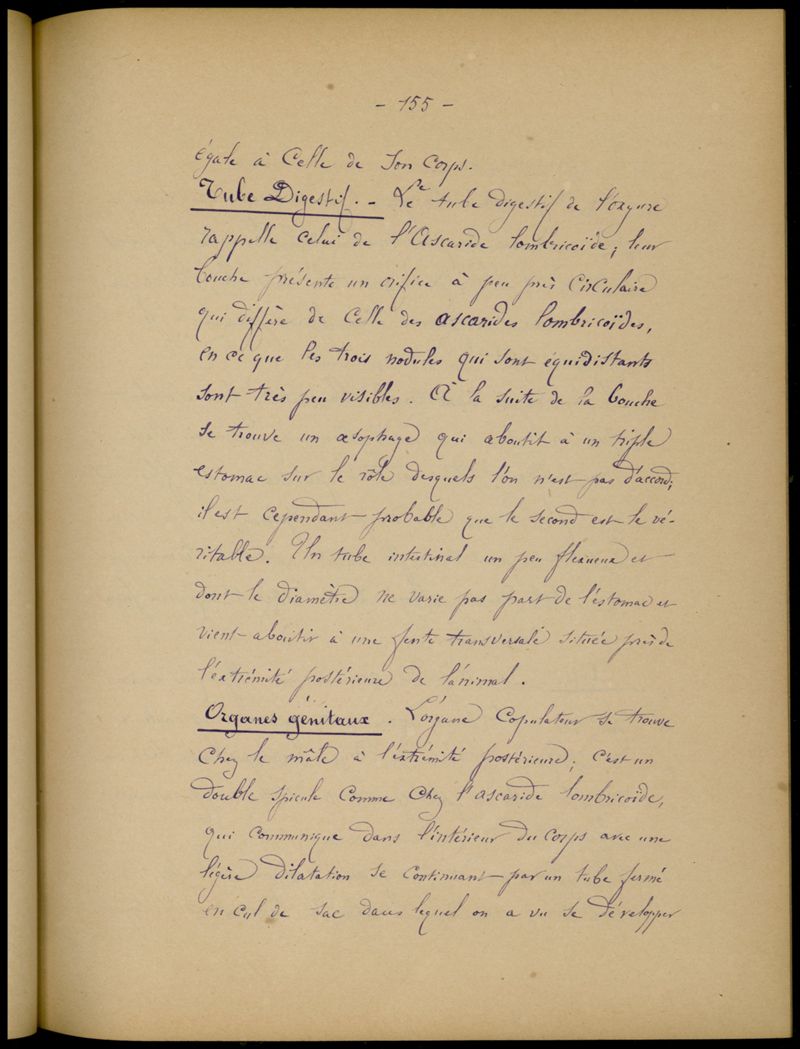 - 155 -
égale à Celle de Son Corps.
Tube Digestif. - Le tube digestif de l'oxyure
rappelle celui de l'Ascaride lombricoïde; leur
bouche présente un orifice à peu près Circulaire
qui diffère de Celle des ascarides lombricoïdes,
en ce que les trois nodules qui sont équidistants
sont très peu visibles. À la suite de la bouche
se trouve un œsophage qui aboutit à un triple
estomac sur le rôle desquels l'on n'est pas d'accord;
il est cependant probable que le second est le vé-
ritable. Un tube intestinal un peu flexueux et
dont le diamètre ne varie pas part de l'estomac et
vient aboutir à une fente transversale située près de
l'extrémité postérieure de l'animal.
Organes génitaux. L'organe Copulateur se trouve
Chez le mâle à l'extrémité postérieure; c'est un
double spicule comme chez l'ascaride lombricoïde,
qui communique dans l'intérieur du corps avec une
légère dilatation se continuant par un tube fermé
en cul de sac dans lequel on a vu se développer